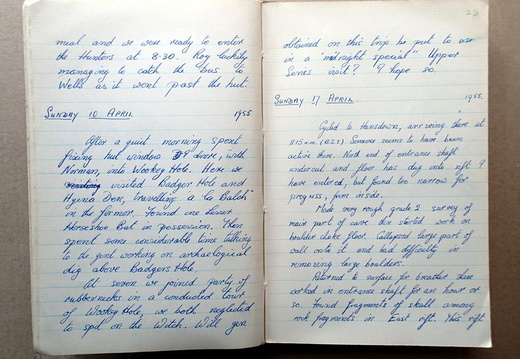 meal and we were ready to enter
the Hunters at 8:30. Roy luckily
managing to catch the bus to
Wells as it went past the hut.
SUNDAY 10 APRIL 1955
After a quiet morning spent
fixing hut window I drove, with
Norman, into Wookey Hole. Here we
visited Badger Hole and
Hyena Den, travelling "a la Balch"
in the former. Found one Lesser
Horseshoe Bat in possession. Then
spent some considerable time talking
to the gent working on archaeological
dig above Badgers Hole.
At seven we joined party of
rubbernecks in a conducted tour
of Wookey Hole, we both neglected
to spit on the Witch. Will gen
23
obtained on this trip be put to use
in a "midnight special" Upper
Series visit? I hope so.
SUNDAY 17 APRIL 1955
Cycled to Lansdown, arriving there at
11.15 am (B.S.T.) Someone seems to have been
active there. North end of entrance shaft
undercut and floor has dug into rift I
have entered, but found too narrow for
progress, from inside.
Made very rough grade 2 survey of
main part of cave then started work on
boulder choke floor. Collapsed large part of
wall onto it and had difficulty in
removing large boulders.
Returned to surface for breather then
worked in entrance shaft for an hour or
so. Found fragments of skull among
rock fragments in East rift. This rift